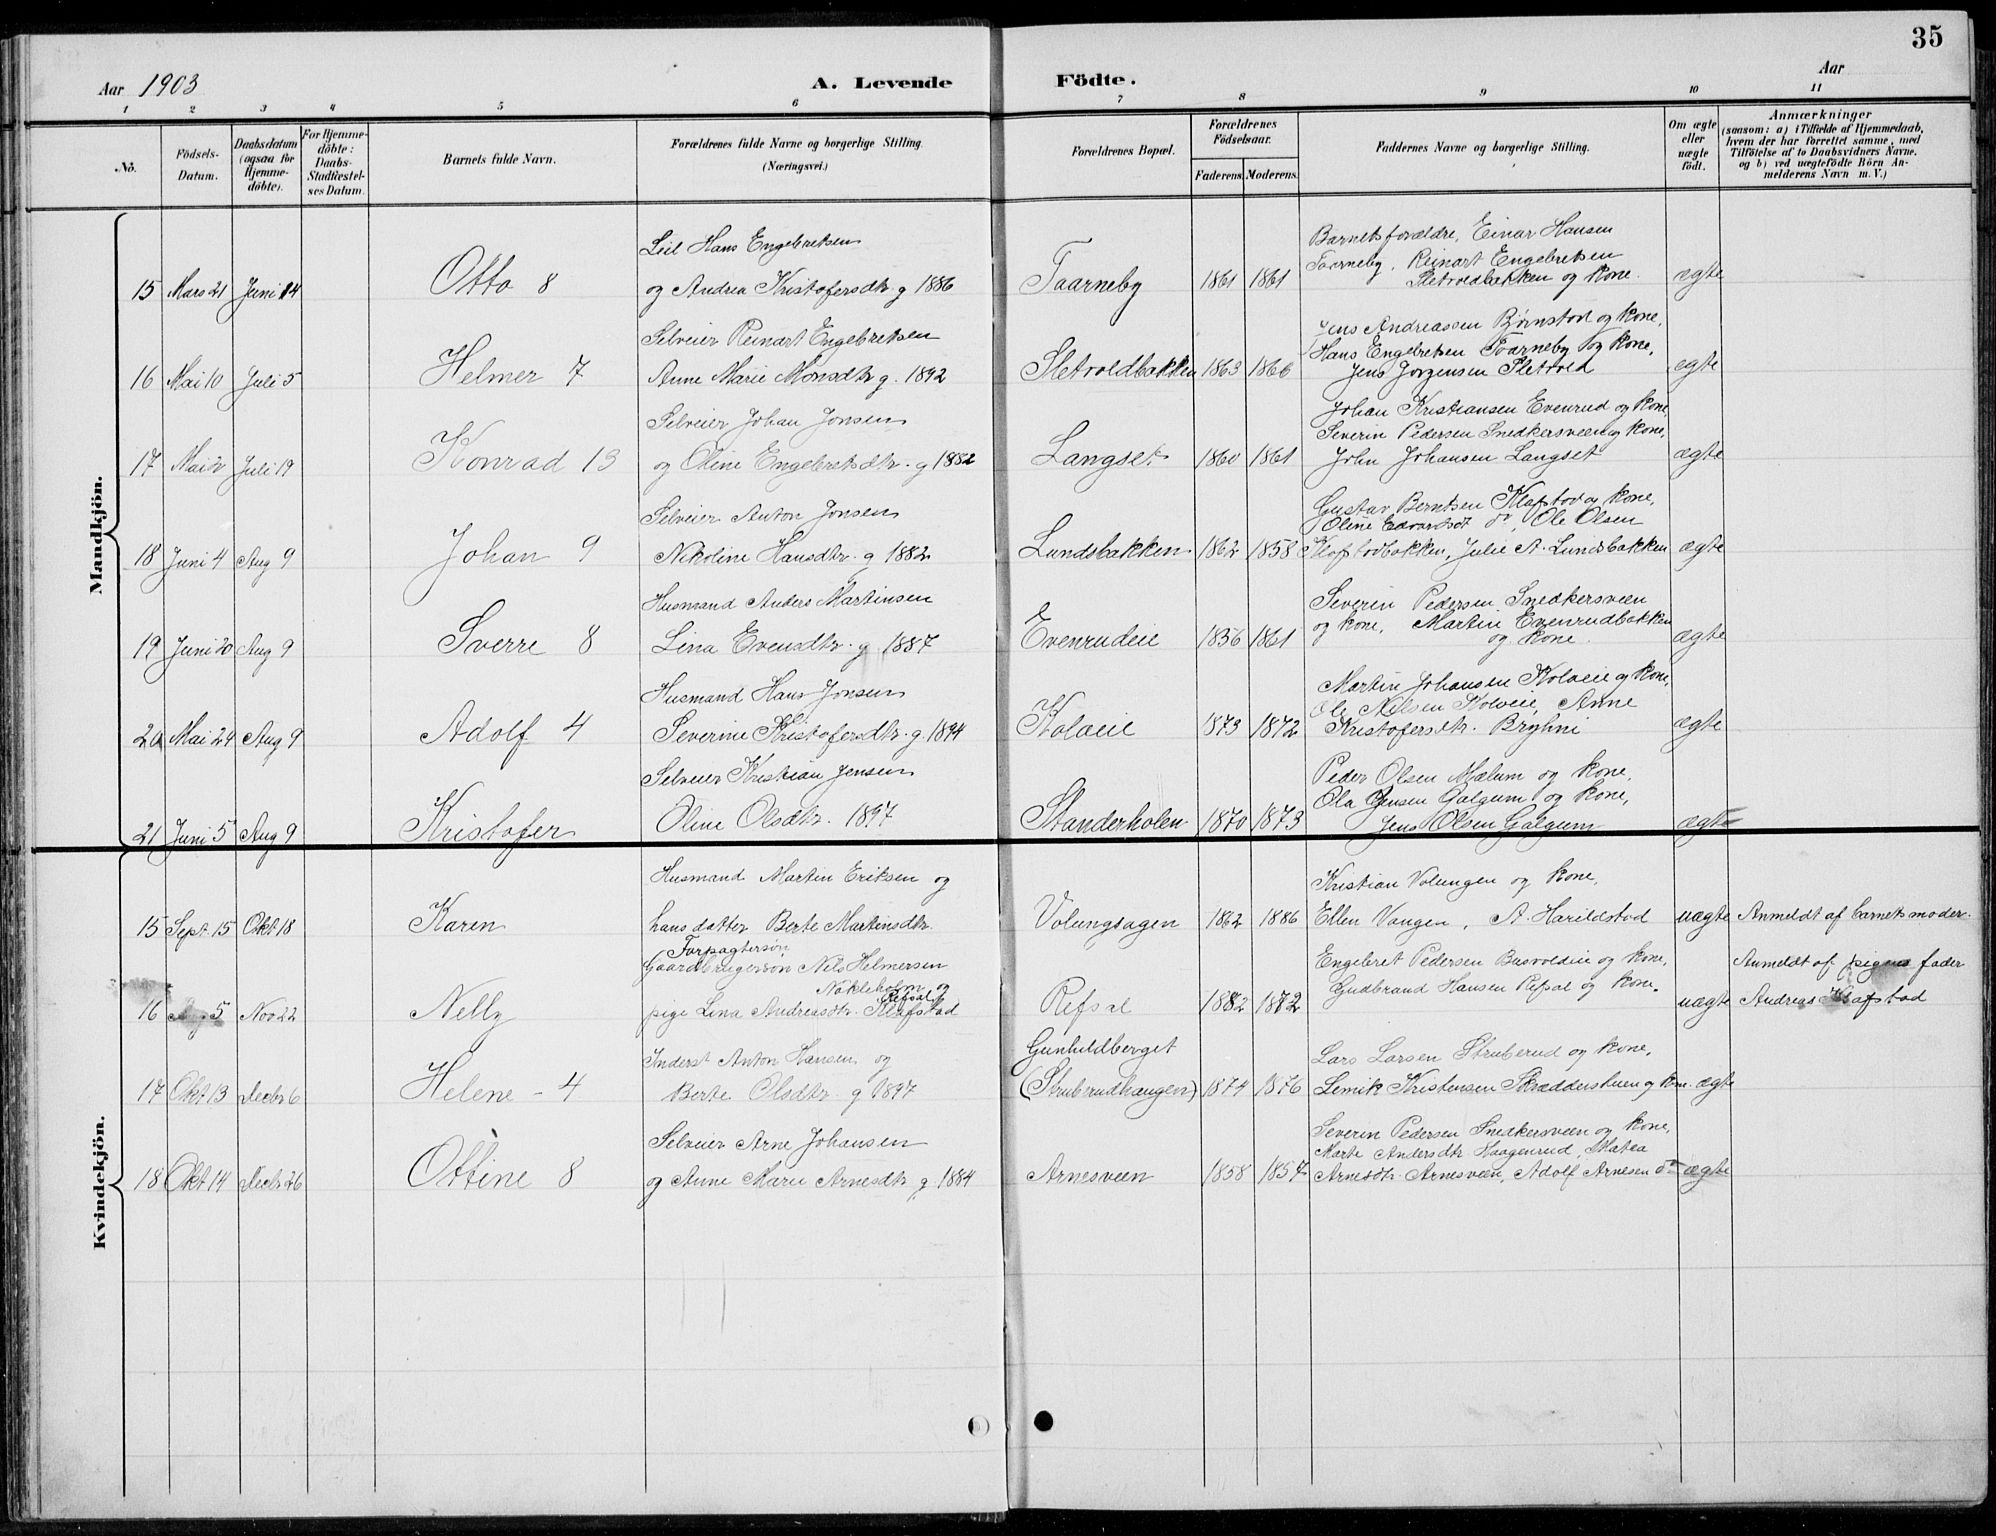 35
Aar 1903
A. Levende Födte.
Aar
1 2 3 4 5 6 7 8 9 10 11
No.
Födsels-Datum.
Daabsdatum (ogsaa for Hjemme-döbte).
For Hjemme-döbte: Daabs-Stadfæstel-ses Datum.
Barnets fulde Navn.
Forældrenes fulde Navne og borgerlige Stilling.
(Næringsvei.)
Forældrenes Bopæl.
Forældrenes Födselsaar.
Faderens. Moderens.
Faddernes Navne og borgerlige Stilling.
Om ægte eller uægte födt.
Anmærkninger
(saasom: a) i Tilfælde af Hjemmedaab, hvem der har forrettet samme, med Tilföielse af to Daabsvidners Navne. og b) ved uægtefödte Börn An-melderens Navn m. V.)
Mandkjön.
Leil Hans Engebretsen
Barnets forældre, Einar Hansen
Taarneby, Reinart Engebretsen
15 Mars 21 Juni 14 Otto 8 og Andrea Kristofersdtr g 1886 Taarneby 1861 1861 Sletvoldbakken og kone. ægte
Selveier Reinart Engebretsen
Jens Andreassen Bjørnstod og kone,
Hans Engebretsen Taarneby og kone,
16 Mai 10 Juli 5 Helmer 7 Anne Marie Monsdtr g. 1892 Sletvoldbakken 1863 1866 Jens Jorgensen Sletvold ægte
Selveier Johan Jonsen
Johan Kristiansen Evenrud og kone,
Severin Pedersen Snedkersveen og kone,
17 Mai 2 Juli 19 Konrad 13 og Oline Engebretsdtr. g 1882 Langset 1860 1861 John Johansen Langset ægte
Selveier Anton Jonsen
Gustav Berntsen Klafstod og kone,
Oline Edvardsdt do, Ole Olsen
18 Juni 4 Aug 9 Johan 9 Nikoline Hansdtr. g 1882 Lundsbakken 1862 1858 Klafstodbakken, Julie A. Lundsbakken ægte
Husmand Anders Martinsen
Severin Pedersen Snedkersveen
og kone, Martin Evenrudbakken
19 Juni 20 Aug 9 Sverre 8 Lina Evensdtr. g. 1887 Evenrudeie 1856 1861 og kone. ægte
Husmand Hans Jonsen
Martin Johansen Kolveie og kone,
Ole Nelsen Kolveie, Anne
20 Mai 24 Aug 9 Adolf 4 Severine Kristofersdtr. g. 1894 Kolveie 1873 1872 Kristofersdtr. Bryhni ægte
Selveier Kristian Jensen
Peder Olsen Mælum og kone,
Ola Jensen Galgum og kone,
21 Juni 5 Aug 9 Kristofer Oline Olsdtr. 1897 Standerholen 1870 1873 Jens Olsen Galgum ægte
Kvindekjön.
Husmand Martin Eriksen og
Kristian Volungen og kone,
15 Sept. 15 Okt 18 Karen hans datter Berte Martinsdtr. Volungsagen 1862 1886 Ellen Vangen, A. Harildstod uægte Anmeldt af barnets moder.
Forpagtersøn
Gaardbrugersøn Nils Helmersen
Nokleholm og
Engebret Pedersen Busvoldeie og kone,
Anmeldt af pigens fader
Refsal
16 5 Nov 22 Nelly pige Lina Andreasdtr. Klafstad Refsal 1882 1872 Gudbrand Hansen Refsal og kone. uægte Andreas Klafstad
Inderst Anton Hansen og
Gunhildberget
Lars Larsen Struberud og kone,
17 Okt 13 Decbr 6 Helene - 4 Berte Olsdtr. g 1897 (Strubrudhaugen) 1874 1876 Lemik Kristensen Skrædderstuen og kone. ægte
Selveier Arne Johansen
Severin Pedersen Snedkersveen og kone,
Marte Andersdtr Haagenrud, Matea
18 Okt 14 Decbr 26 Ottine 8 og Anne Marie Arnesdtr g. 1884 Arnesveen 1858 1857 Arnesdtr Arnesveen, Adolf Arnesen do ægte